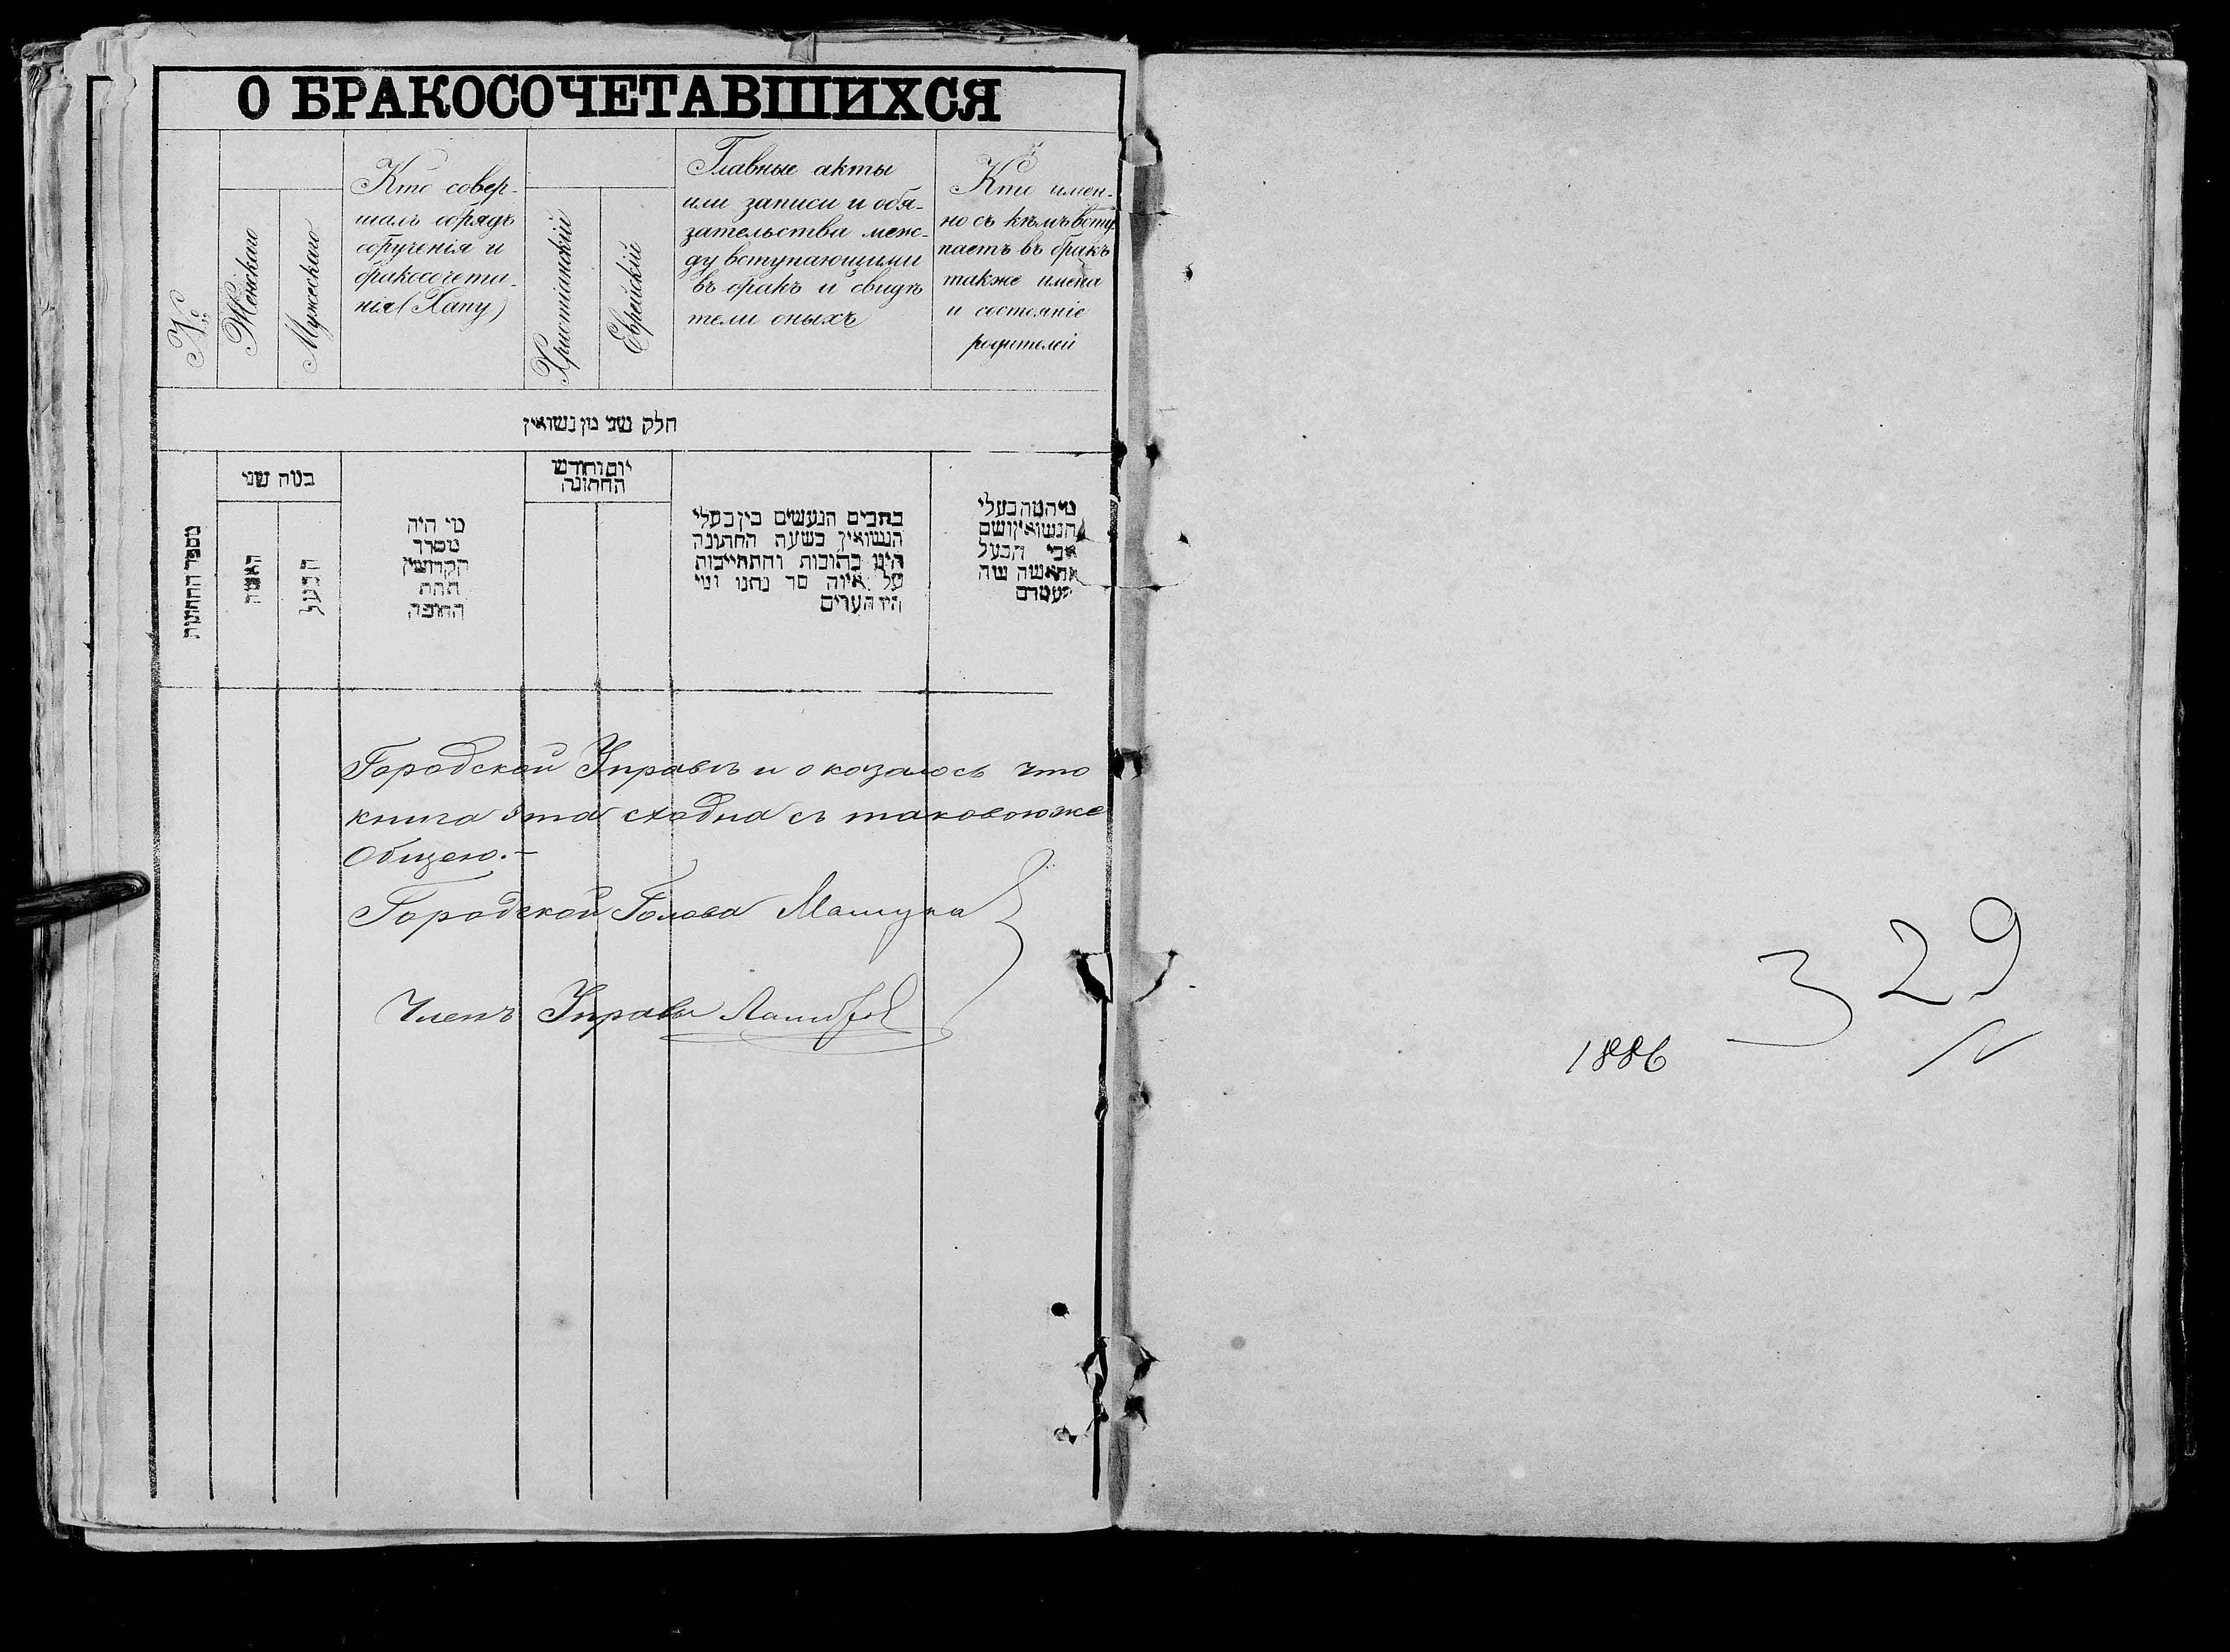 О БРАКОСОЧЕТАВШИХСЯ
№
Женскаго
Мужескаго
Кто совер-
шалъ обрядъ
обрученія и
бракосочета-
нія (Хапу)
Христіанскій
Еврейскій
Главные акты
или записи и обя-
зательства меж-
ду вступающими
въ бракъ и свидѣ
тели оныхъ
Кто имен-
но съ кѣмъ всту
паетъ въ бракъ
также имена
и состояніе
родителей
חלק שני מן נשואין
מספר החתונות
כמה שני
האשה
הבעל
מי היה
מסדר
הקדושין
תחת
החופה
יום וחודש
החתונה
כתבים הנעשים בין בעלי
הנשואין בשעה החתונה
היינו כתובות והתחייבות
על איזה סך נתנו ומי
היו העדים
מי המה בעלי
הנשואין ושם
אבי הבעל
והאשה
Городской Управѣ и оказалось что
книга эта сходна съ таковоюже
Общею.-
Городской Голова
Членъ Управы
329
1886